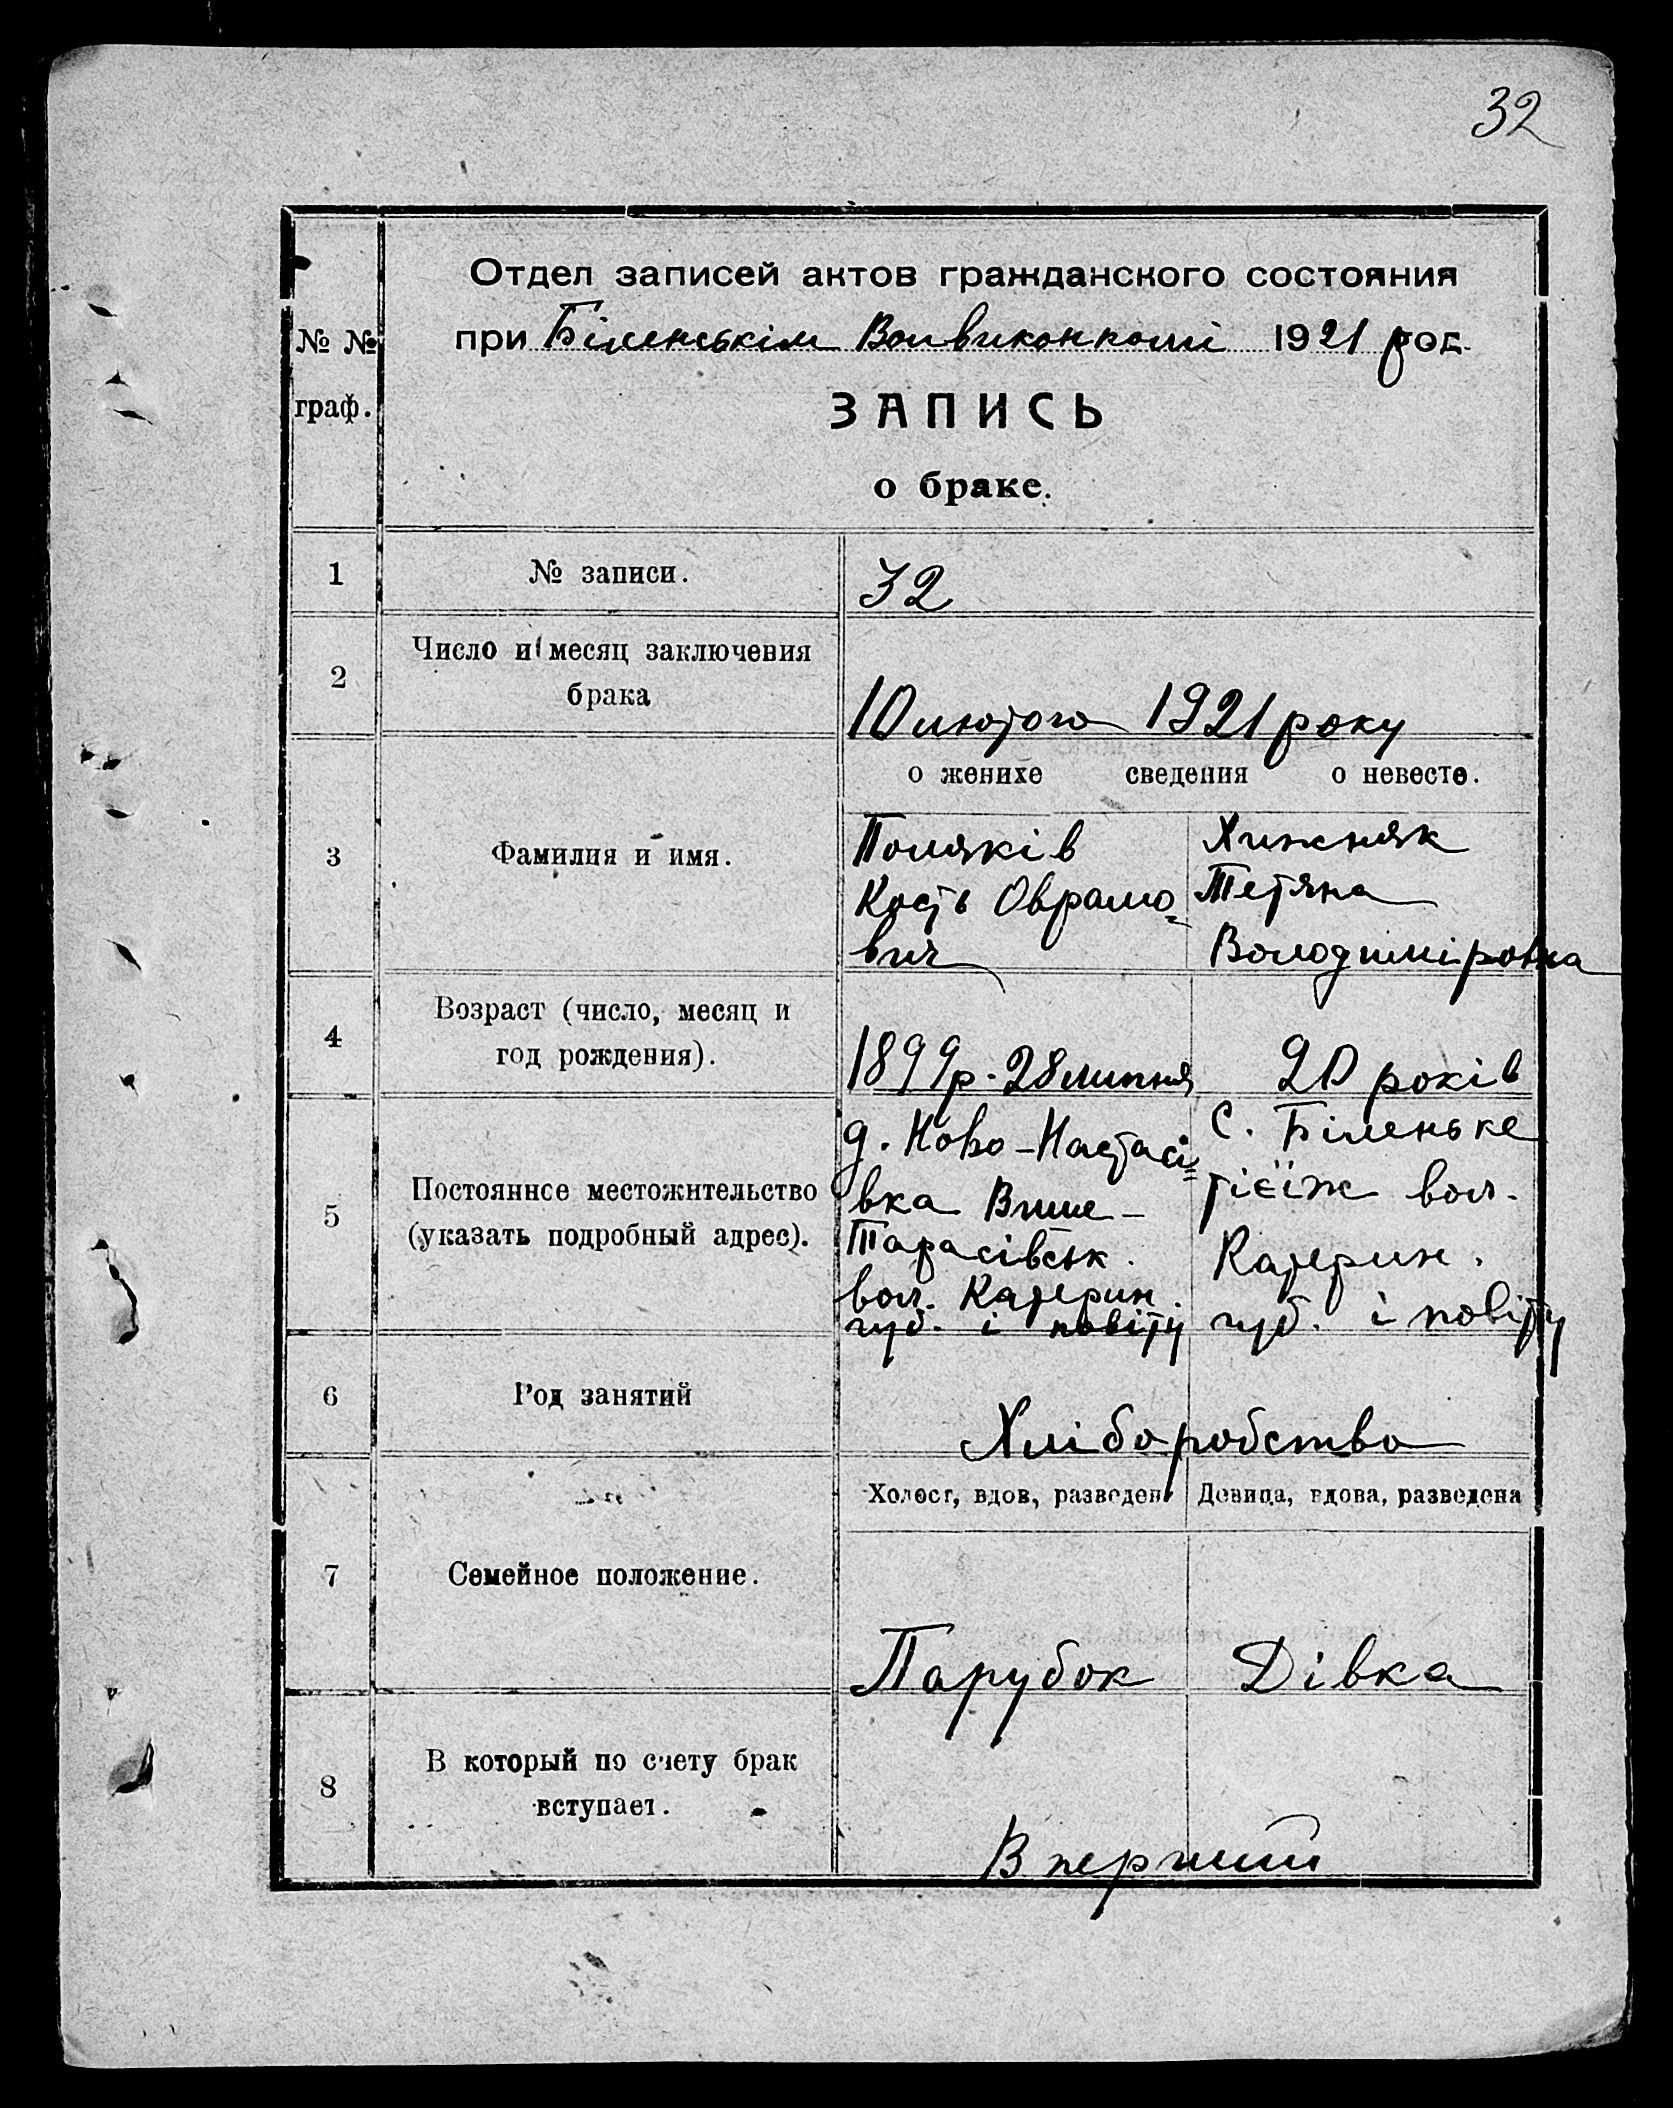 32
Отдел записей актов гражданского состояния
№ №
при Біленськім Волвиконкомі 1921 год.
граф.
ЗАПИСЬ
о браке.
1 № записи. 32
2 Число и месяц заключения
брака
10 лютого 1921 року
о женихе сведения о невесте.
3 Фамилия и имя.
Поляків
Кость Оврамо-
вич
Хижняк
Тетяна
Володиміровна
4 Возраст (число, месяц и
год рождения).
1899 р. 28 липня
20 років
5 Постоянное местожительство
(указать подробный адрес).
д. Ново-Настасі=
вка Више-
Тарасівськ.
вол. Катерин.
губ. і повіту
С. Біленьке
тієїж вол.
Катерин.
губ. і повіту
6 Род занятий
Хліборобство
Холост, вдов, разведен Девица, вдова, разведена
7 Семейное положение.
Парубок Дівка
8 В который по счету брак
вступает.
В перший